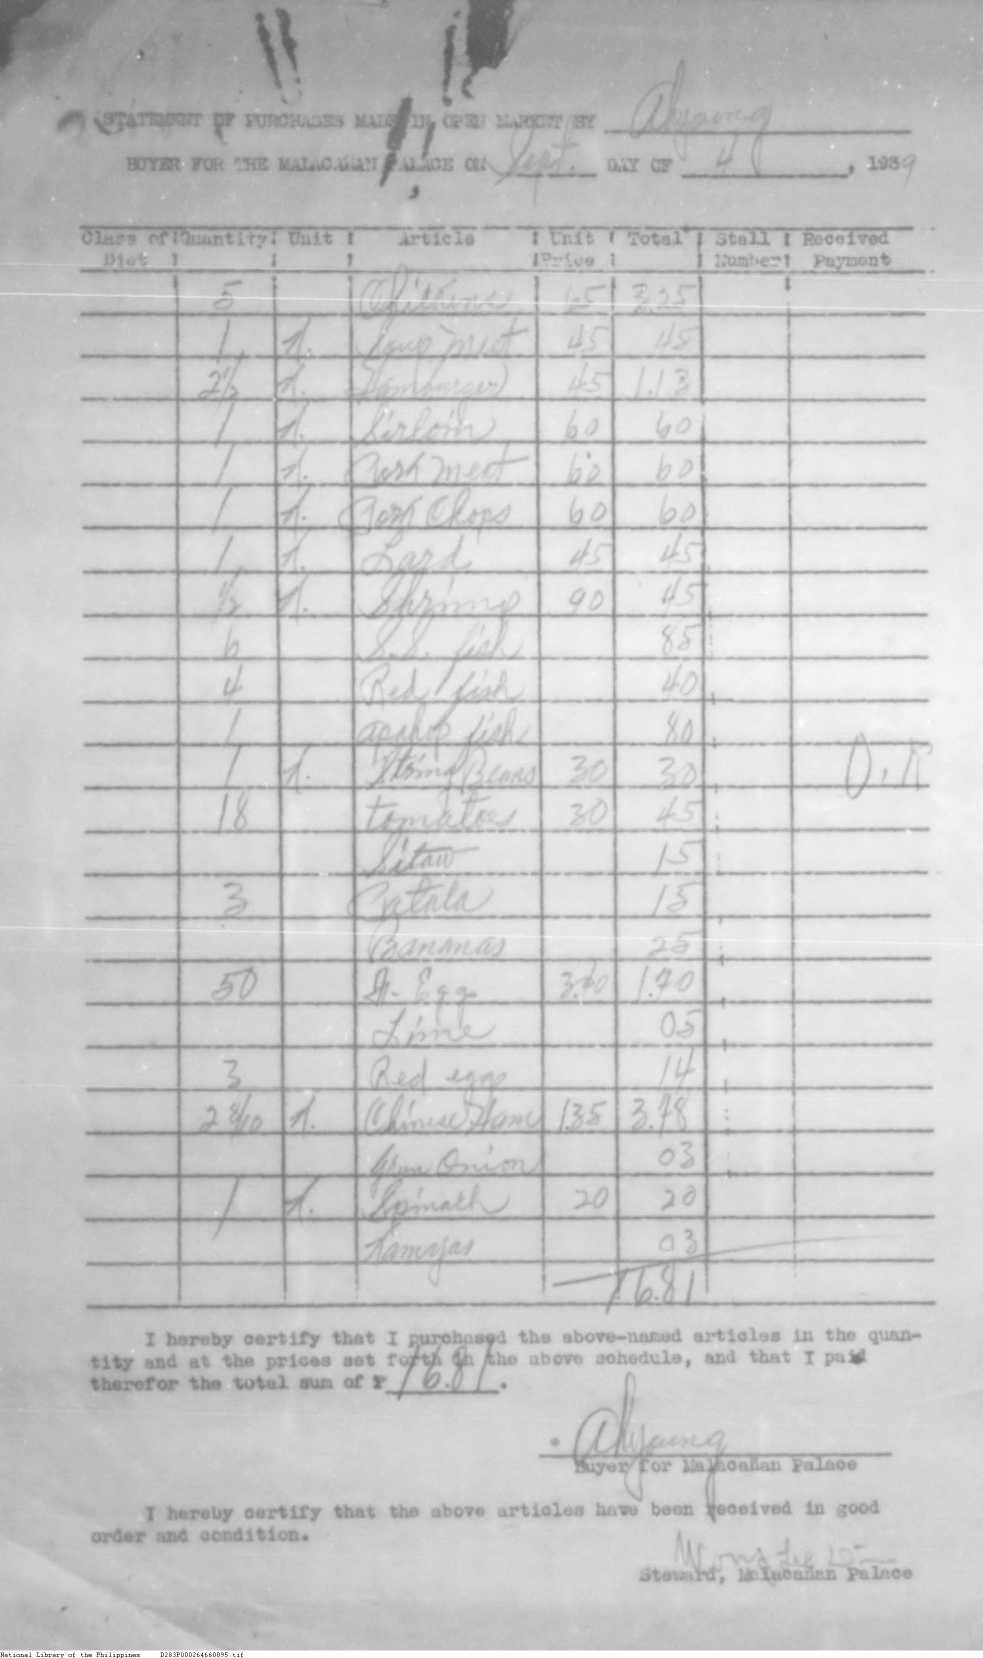 STATEMENT OF PURCHASES MADE IN OPEN MARKET BY Ahyoung
BUYER FOR THE MALACAÑAN PALACE ON Sept. DAY OF 4, 1939
Class of Diet Quantity Unit Article Unit Price Total Stall Number Received Payment
5 Chickens 65 3.25
1 k. Soup meat 45 45
2 1/2 k. Hamburger 45 1.13
1 k. Sirloin 60 60
1 k. Pork meat 60 60
1 k. Pork Chops 60 60
1 k. Lard 45 45
1/2 k. Shrimp 90 45
6 S.S. fish 85
4 Red fish 40
1 apahap fish 80
1 k. String Beans 30 30 O.K
18 tomatoes 30 45
Sitaw 15
3 Patola 15
Bananas 25
50 Egg 3.40 1.70
Lime 05
3 Red eggs 14
2 8/10 k. Chinese Ham 1.35 3.78
Green Onion 03
1 k. Spinach 20 20
Kamyas 03
16.81
I hereby certify that I purchased the above-named articles in the quan-
tity and at the prices set forth in the above schedule, and that I paid
therefor the total sum of ₱ 16.81.
Ahyoung
Buyer for Malacañan Palace
I hereby certify that the above articles have been received in good
order and condition.
Wong
Steward, Malacañan Palace
National Library of the Philippines D283P000264660895.tif